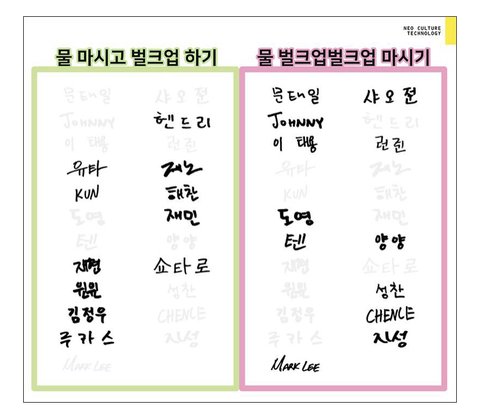 NEO CULTURE
TECHNOLOGY
물 마시고 벌크업 하기
문태일 샤오쥔
JOHNNY 헨드리
이 태용 런쥔
유타 제노
KUN 해찬
도영 재민
텐 양양
재현 쇼타로
윈윈 성찬
김정우 CHENLE
루카스 지성
MARK LEE
물 벌크업벌크업 마시기
문태일 샤오쥔
JOHNNY 헨드리
이 태용 런쥔
유타 제노
KUN 해찬
도영 재민
텐 양양
재현 쇼타로
윈윈 성찬
김정우 CHENLE
루카스 지성
MARK LEE